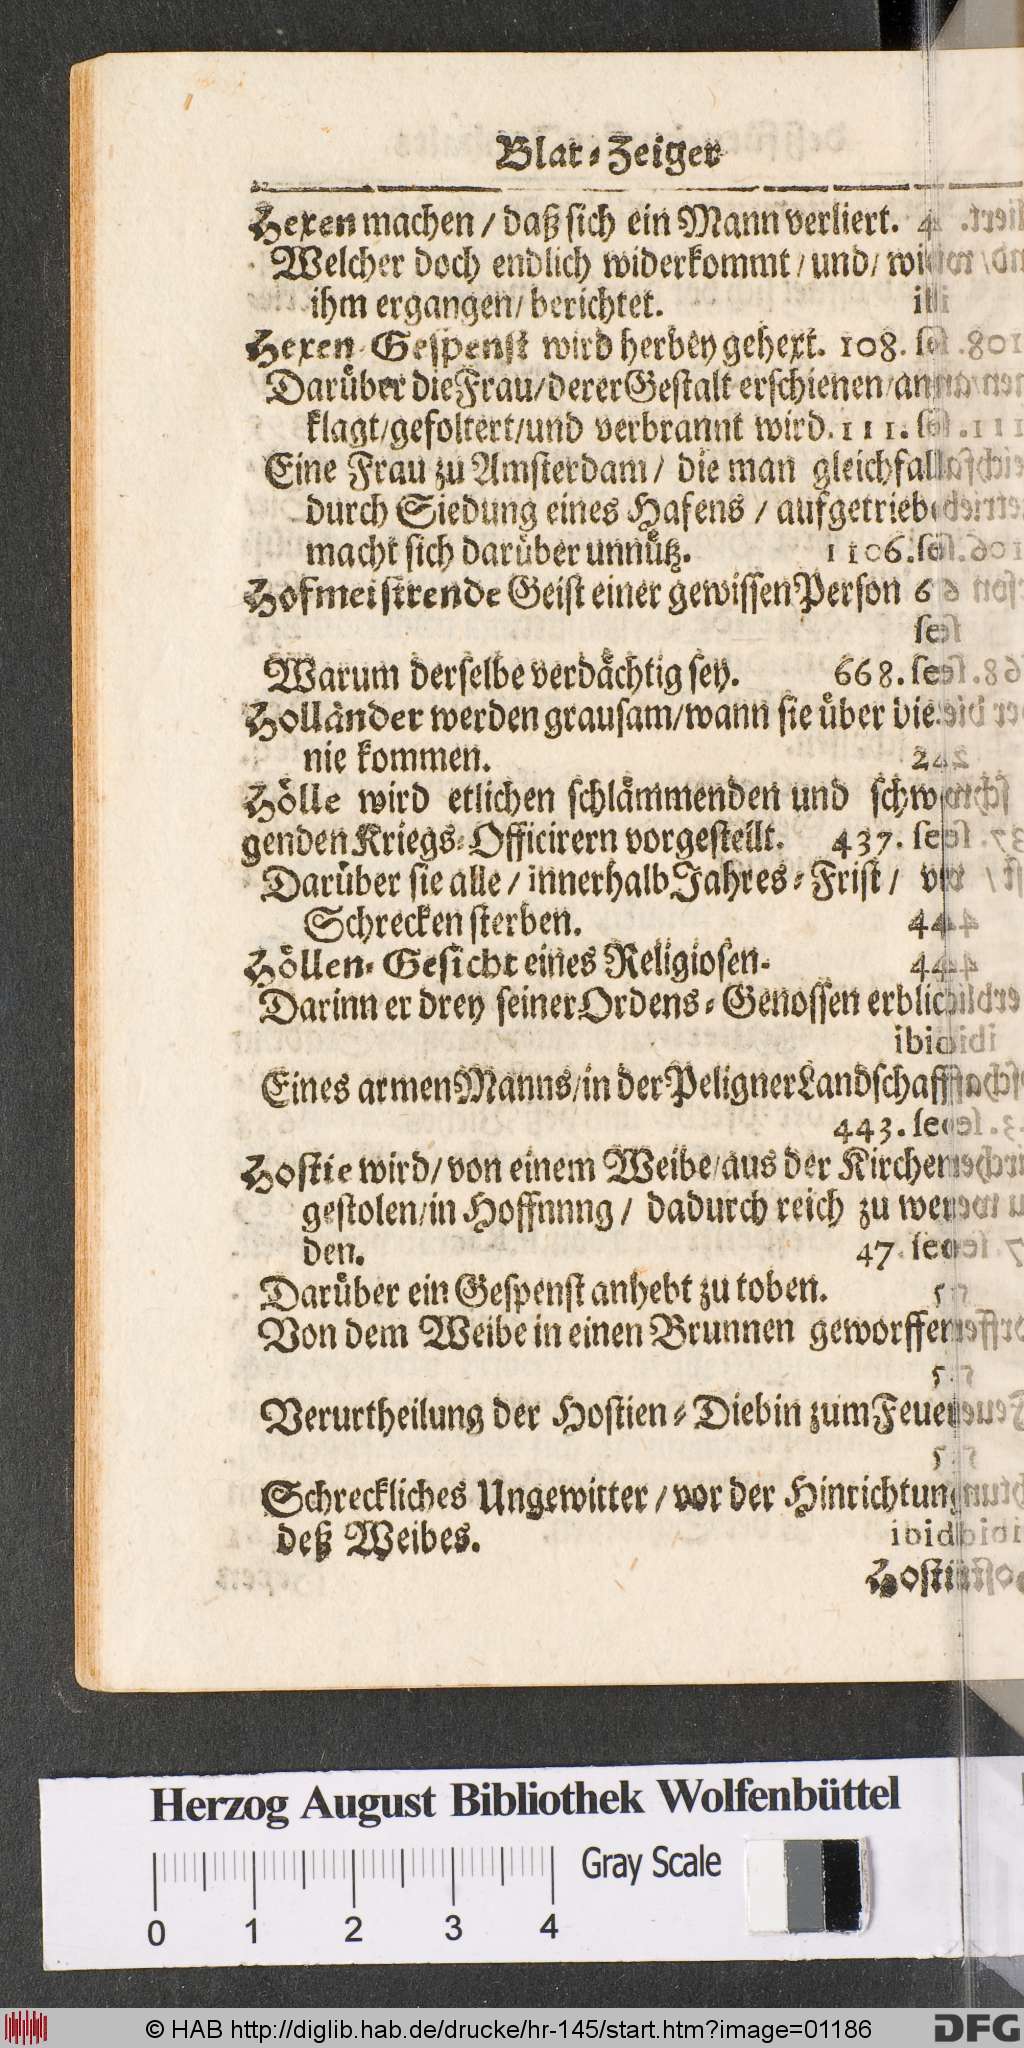 Blat-Zeiger
Hexen machen / daß sich ein Mann verliert.
Welcher doch endlich widerkommt / und /
ihm ergangen / berichtet.
Hexen-Gespenst wird herbey gehext. 108.
Darüber die Frau / derer Gestalt erschienen / an
klagt / gefoltert / und verbrannt wird. 111.
Eine Frau zu Amsterdam / die man gleichfalls
durch Siedung eines Hafens / aufgetrieb
macht sich darüber unnütz. 1106. seq.
Hofmeistrende Geist einer gewissen Person
seq.
Warum derselbe verdächtig sey. 668. seq.
Holländer werden grausam / wann sie über die
nie kommen.
Hölle wird etlichen schlämmenden und
genden Kriegs-Officirern vorgestellt. 437. seq.
Darüber sie alle / innerhalb Jahres-Frist / vor
Schrecken sterben.
Höllen-Gesicht eines Religiosen.
Darinn er drey seiner Ordens-Genossen
ibid
Eines armen Manns / in der Peligner Landschafft
443. seq.
Hostie wird / von einem Weibe / aus der Kirchen
gestolen / in Hoffnnng / dadurch reich zu wer
den. 47. seq.
Darüber ein Gespenst anhebt zu toben.
Von dem Weibe in einen Brunnen geworffen
Verurtheilung der Hostien-Diebin zum Feuer
Schreckliches Ungewitter / vor der Hinrichtung
deß Weibes. ibid
Herzog August Bibliothek Wolfenbüttel
Gray Scale
0 1 2 3 4
© HAB http://diglib.hab.de/drucke/hr-145/start.htm?image=01186
DFG